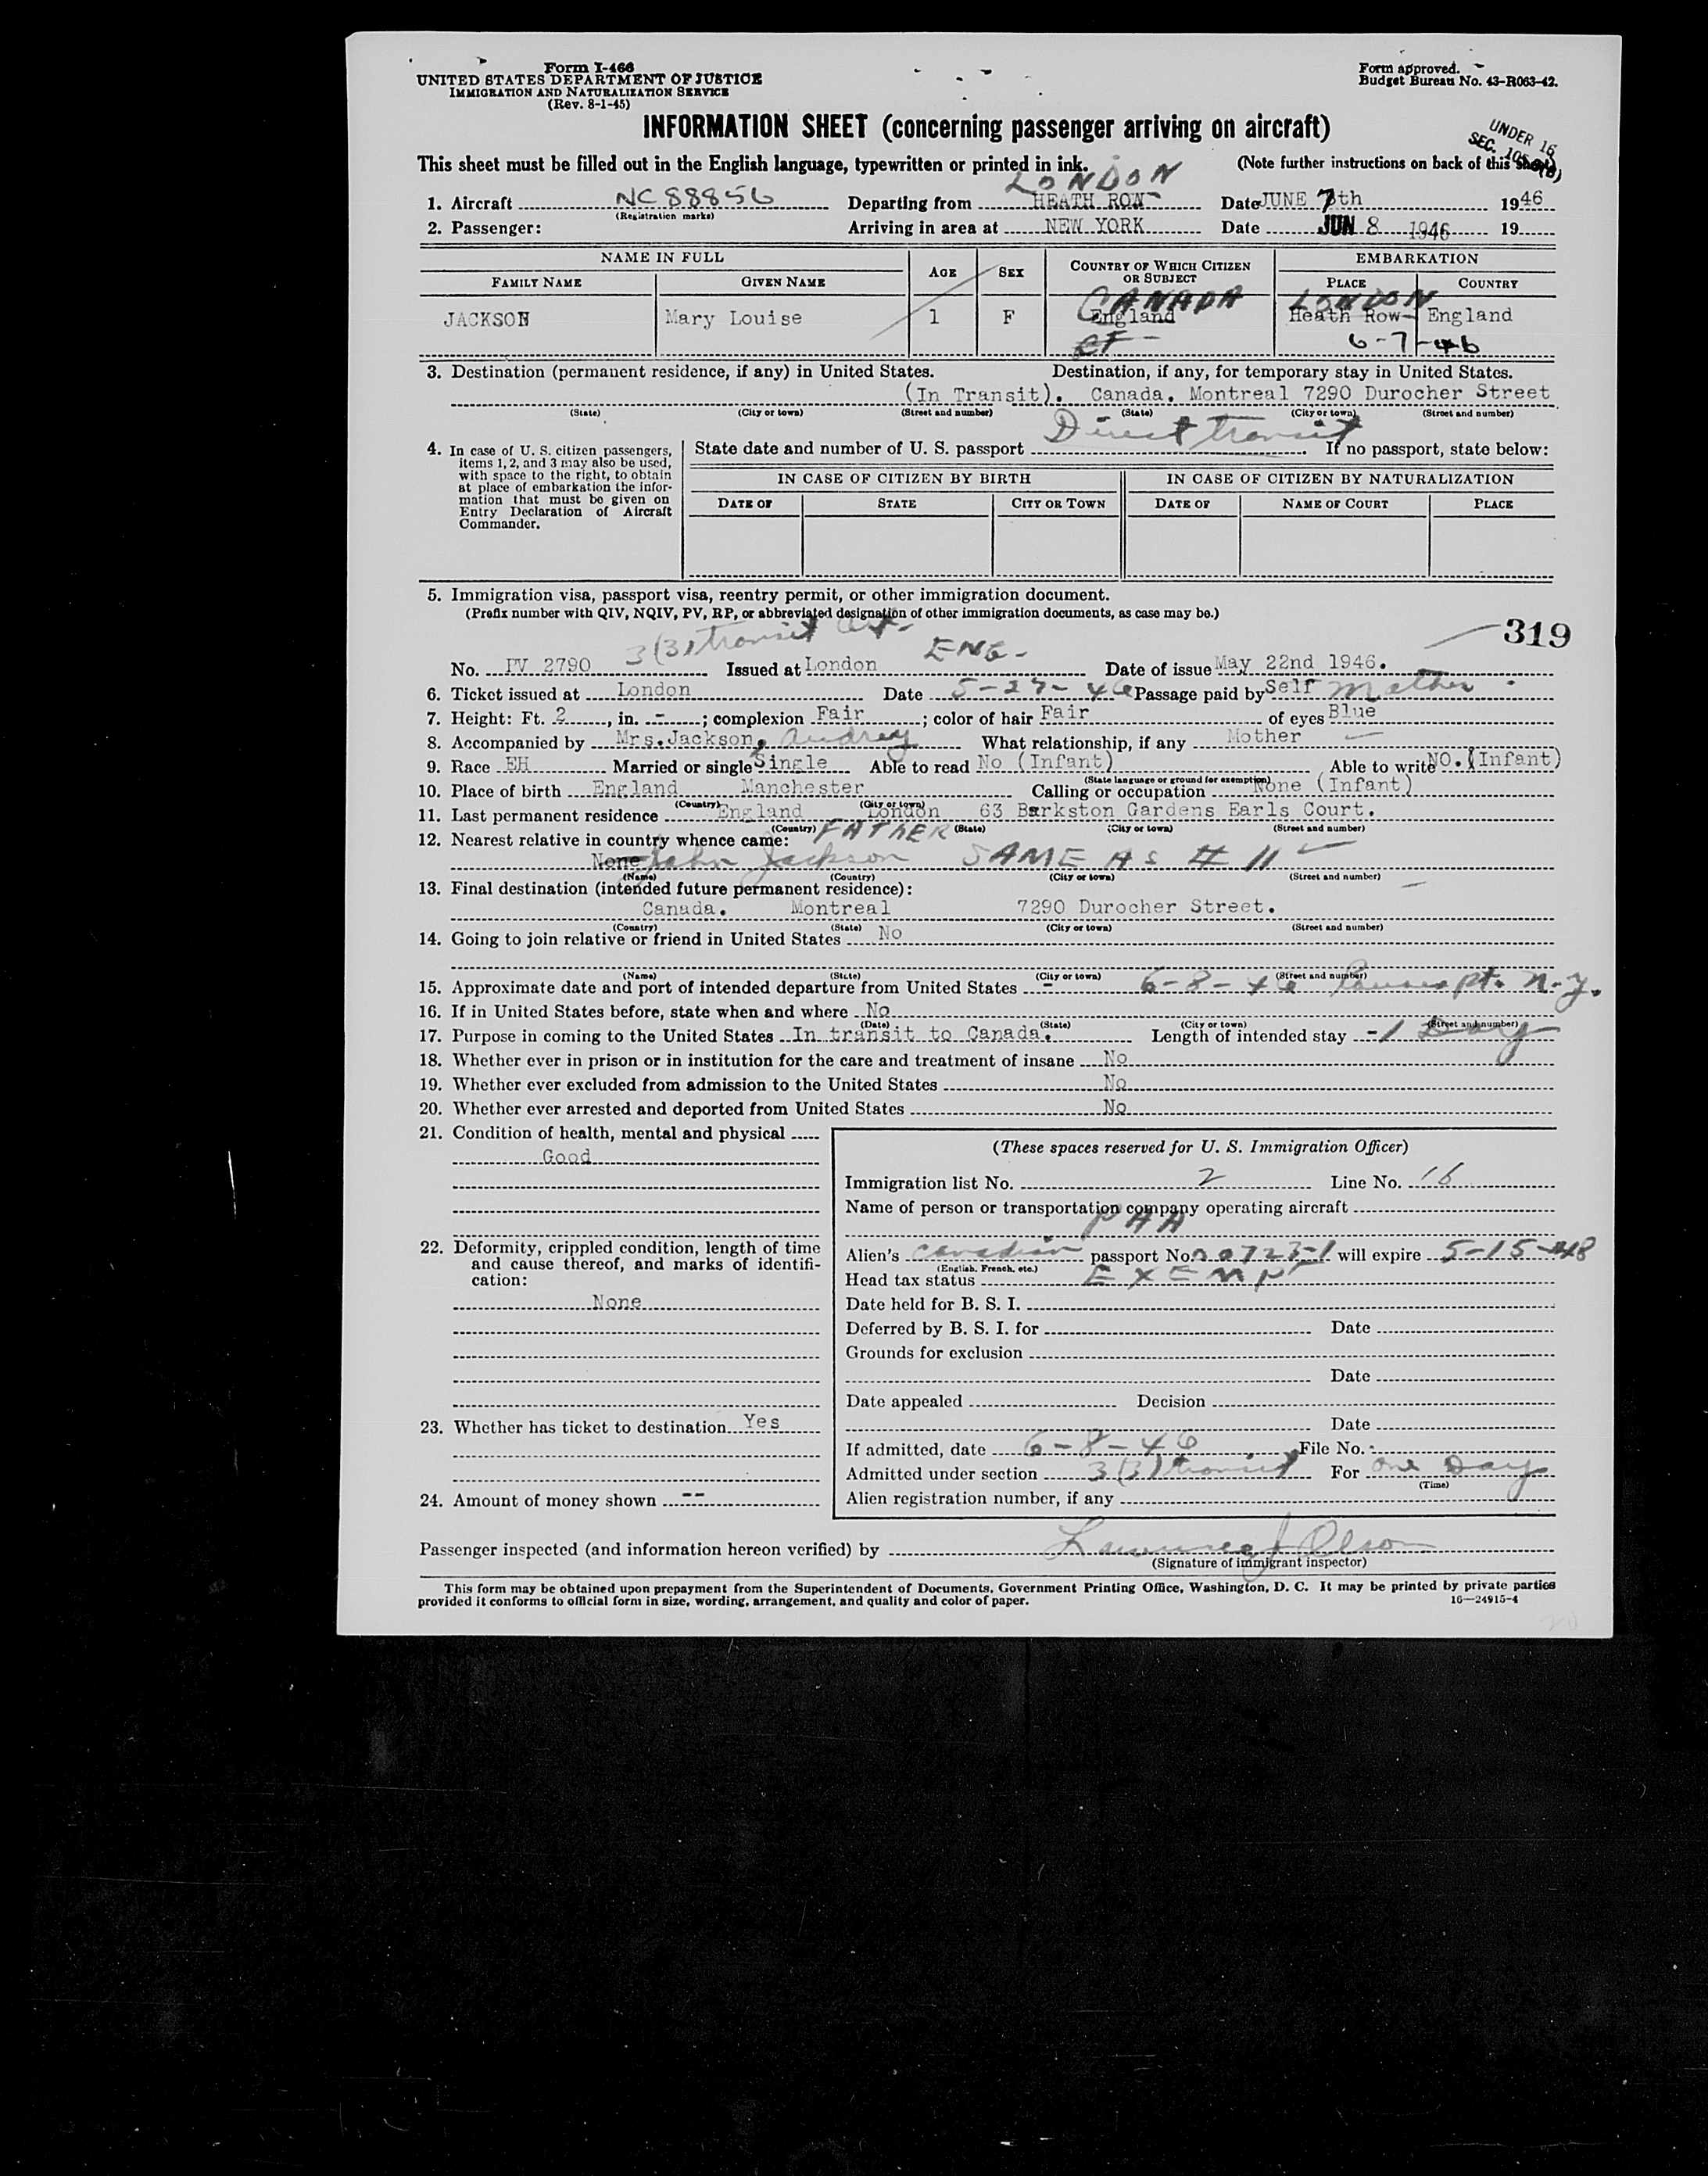 Form I-466
UNITED STATES DEPARTMENT OF JUSTICE
IMMIGRATION AND NATURALIZATION SERVICE
(Rev. 8-1-45)
Form approved.
Budget Bureau No. 43-R063-42.
INFORMATION SHEET (concerning passenger arriving on aircraft)
UNDER 16
SEC.
This sheet must be filled out in the English language, typewritten or printed in ink. (Note further instructions on back of this sheet)
LONDON
1. Aircraft NC 88856 Departing from HEATH ROW Date JUNE 7th 1946
(Registration marks)
2. Passenger: Arriving in area at NEW YORK Date JUN 8 1946 19
NAME IN FULL AGE SEX COUNTRY OF WHICH CITIZEN OR SUBJECT EMBARKATION
FAMILY NAME GIVEN NAME PLACE COUNTRY
CANADA LONDON
JACKSON Mary Louise 1 F England Heath Row England
CF - 6-7-46
3. Destination (permanent residence, if any) in United States. Destination, if any, for temporary stay in United States.
(In Transit). Canada. Montreal 7290 Durocher Street
(State) (City or town) (Street and number) (State) (City or town) (Street and number)
Direct transit
4. In case of U. S. citizen passengers, items 1, 2, and 3 may also be used, with space to the right, to obtain at place of embarkation the information that must be given on Entry Declaration of Aircraft Commander.
State date and number of U. S. passport If no passport, state below:
IN CASE OF CITIZEN BY BIRTH IN CASE OF CITIZEN BY NATURALIZATION
DATE OF STATE CITY OR TOWN DATE OF NAME OF COURT PLACE
5. Immigration visa, passport visa, reentry permit, or other immigration document.
(Prefix number with QIV, NQIV, PV, RP, or abbreviated designation of other immigration documents, as case may be.)
319
3(3) transit cert-
ENG-
No. PV 2790 Issued at London Date of issue May 22nd 1946.
6. Ticket issued at London Date 5-27-46 Passage paid by Self Mother
7. Height: Ft. 2, in. -; complexion Fair; color of hair Fair of eyes Blue
8. Accompanied by Mrs. Jackson, Audrey What relationship, if any Mother
9. Race EH Married or single Single Able to read No (Infant) Able to write NO. (Infant)
(State language or ground for exemption)
10. Place of birth England Manchester Calling or occupation None (Infant)
(Country) (City or town)
11. Last permanent residence England London 63 Barkston Gardens Earls Court.
(Country) (State) (City or town) (Street and number)
12. Nearest relative in country whence came: FATHER
None John Jackson SAME AS # 11
(Name) (Country) (City or town) (Street and number)
13. Final destination (intended future permanent residence):
Canada. Montreal 7290 Durocher Street.
(Country) (State) (City or town) (Street and number)
14. Going to join relative or friend in United States No
(Name) (State) (City or town) (Street and number)
15. Approximate date and port of intended departure from United States - 6-8-46 Rouses pt. N.Y.
16. If in United States before, state when and where No
(Date) (State) (City or town) (Street and number)
17. Purpose in coming to the United States In transit to Canada. Length of intended stay -1 Day
18. Whether ever in prison or in institution for the care and treatment of insane No
19. Whether ever excluded from admission to the United States No
20. Whether ever arrested and deported from United States No
21. Condition of health, mental and physical
Good
22. Deformity, crippled condition, length of time and cause thereof, and marks of identification:
None
23. Whether has ticket to destination Yes
24. Amount of money shown --
(These spaces reserved for U. S. Immigration Officer)
Immigration list No. 2 Line No. 16
Name of person or transportation company operating aircraft
PAA
Alien's Canadian passport No. will expire 5-15-48
(English, French, etc.)
Head tax status EXEMPT
Date held for B. S. I.
Deferred by B. S. I. for Date
Grounds for exclusion
Date
Date appealed Decision
Date
If admitted, date 6-8-46 File No.
Admitted under section 3(3) transit For one Day
(Time)
Alien registration number, if any
Passenger inspected (and information hereon verified) by Lawrence J Olson
(Signature of immigrant inspector)
This form may be obtained upon prepayment from the Superintendent of Documents, Government Printing Office, Washington, D. C. It may be printed by private parties
provided it conforms to official form in size, wording, arrangement, and quality and color of paper. 16—24915-4